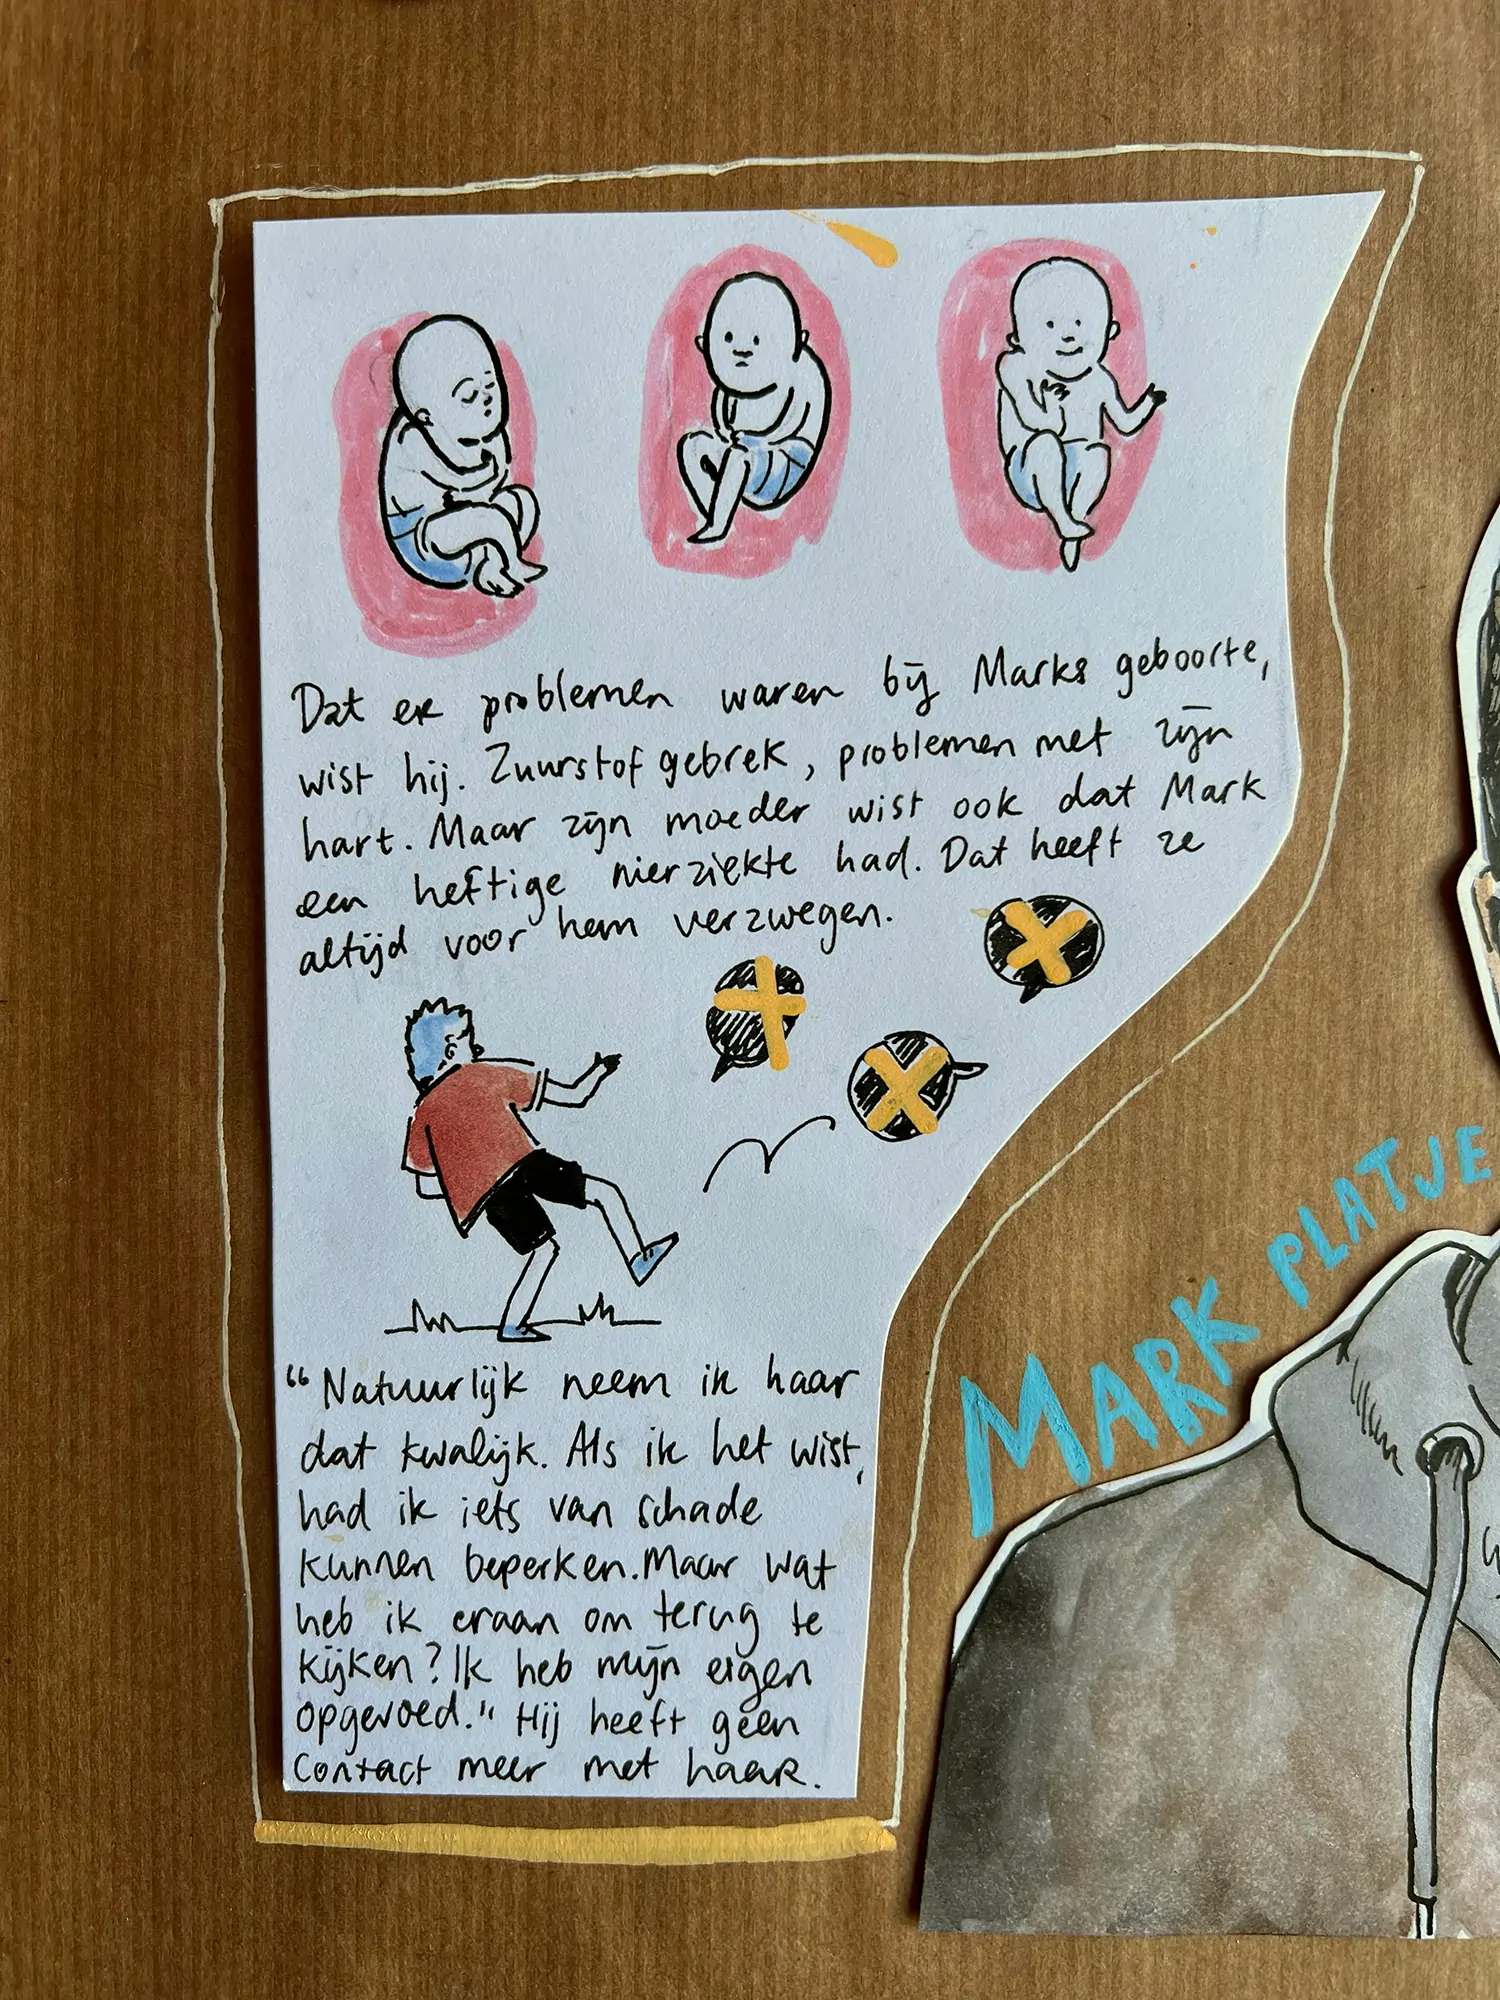 Dat er problemen waren bij Marks geboorte,
wist hij. Zuurstofgebrek, problemen met zijn
hart. Maar zijn moeder wist ook dat Mark
een heftige nierziekte had. Dat heeft ze
altijd voor hem verzwegen.
"Natuurlijk neem ik haar
dat kwalijk. Als ik het wist,
had ik iets van schade
kunnen beperken. Maar wat
heb ik eraan om terug te
kijken? Ik heb mijn eigen
opgevoed." Hij heeft geen
contact meer met haar.
MARK PLATJE